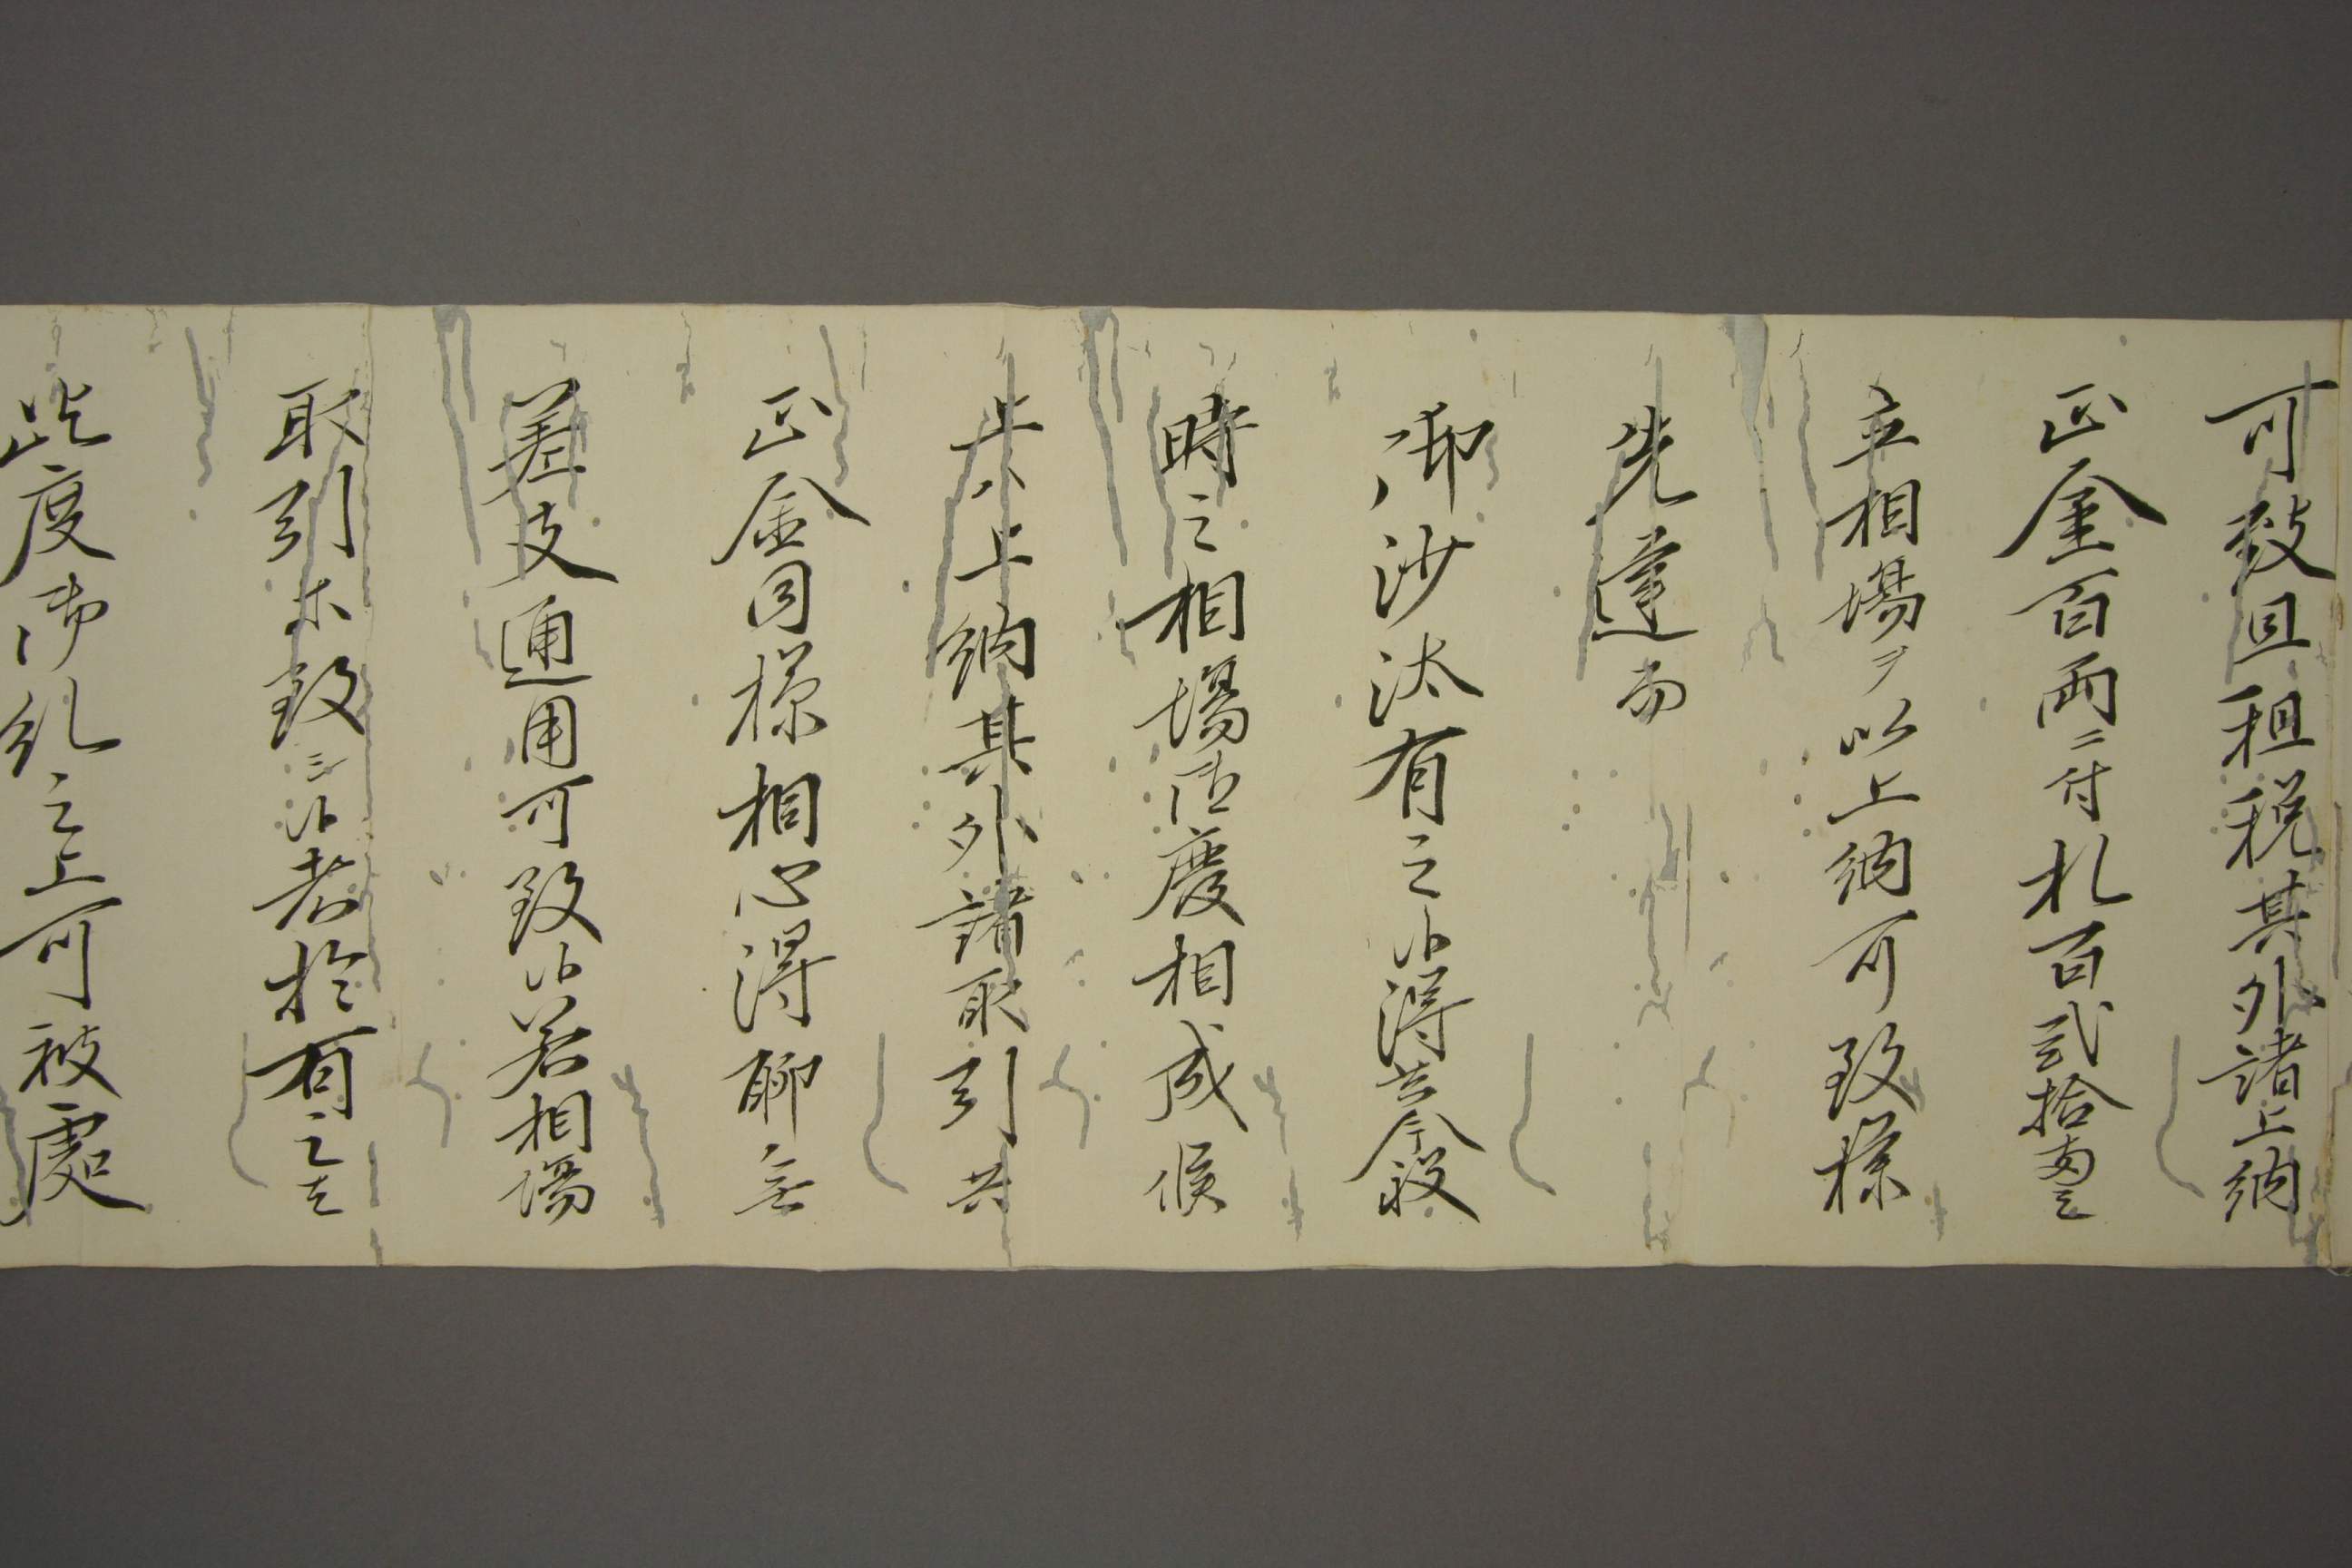 可致且租税其外諸上納
正金百両ニ付札百弐拾両之
立相場ヲ以上納可致様
先達而
御沙汰有之候得共今般
時之相場御廃相成候
上ハ上納其外諸取引共
正金同様相心得聊無
差支通用可致候若相場
取引等致シ候者於有之者
此度御糺之上可被處